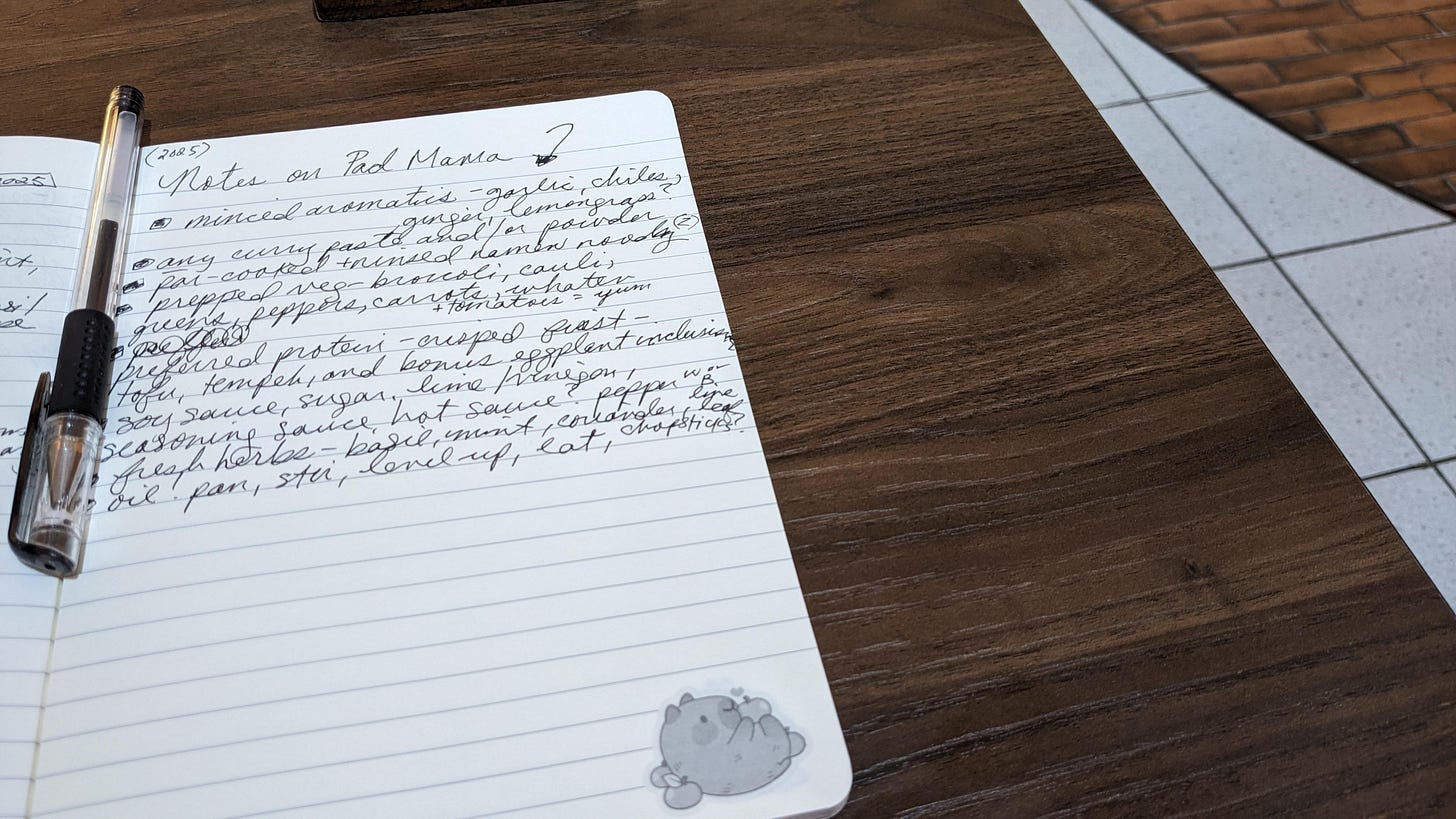 2025
(2025)
Notes on Pad Mama ?
minced aromatics - garlic, chiles,
ginger, lemongrass?
any curry paste and/or powder
par-cooked + rinsed ramen noods (2)
prepped veg - broccoli, cauli,
greens, peppers, carrots, whatev
+ tomatoes = yum
preferred protein - crisped first -
tofu, tempeh, and bonus eggplant
soy sauce, sugar, lime/vinegar,
seasoning sauce, hot sauce? pepper w or B
fresh herbs - basil, mint, coriander, lime leaf
oil. pan, stir, level-up, eat, chopsticks?